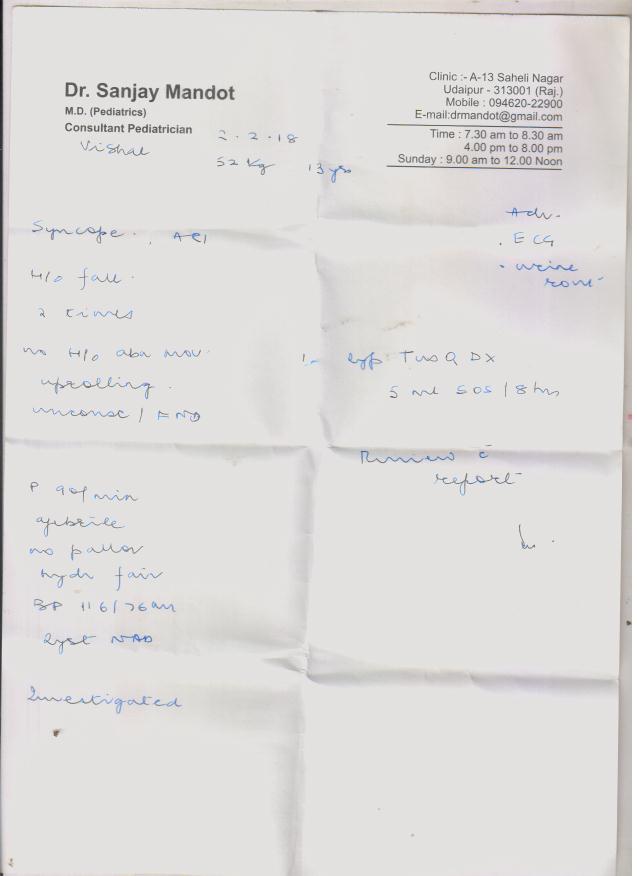 Dr. Sanjay Mandot
M.D. (Pediatrics)
Consultant Pediatrician
Clinic :- A-13 Saheli Nagar
Udaipur - 313001 (Raj.)
Mobile : 094620-22900
E-mail:drmandot@gmail.com
Time : 7.30 am to 8.30 am
4.00 pm to 8.00 pm
Sunday : 9.00 am to 12.00 Noon
2.2.18
Vishal
52 Kg 13 yrs
Syncope.
H/o fall.
2 times
no H/o abn mov.
uprolling.
unconsc /
P 90/min
afebrile
no pallor
hydr fair
BP 116/76
Syst NAD
Investigated
Adv.
. ECG
. urine
rout
1. Syp TusQ DX
5 ml SOS / 8 hrs
Review c̄
report